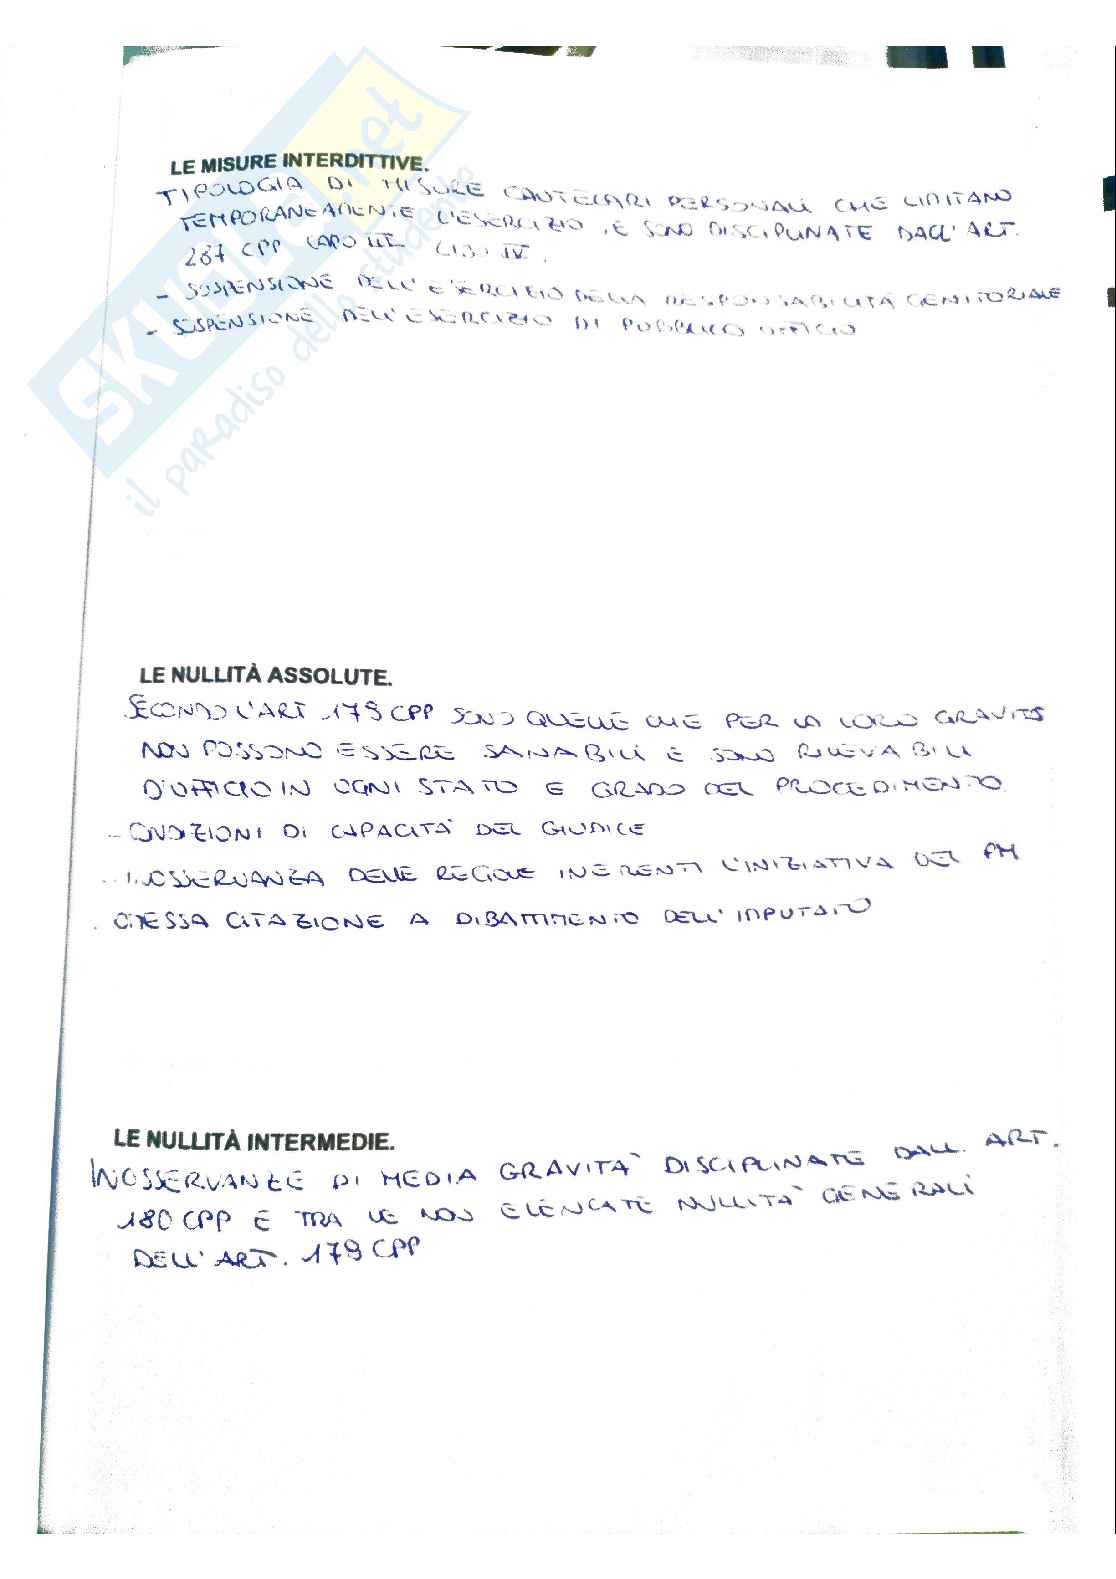 LE MISURE INTERDITTIVE.
TIPOLOGIA DI MISURE CAUTELARI PERSONALI CHE LIMITANO
TEMPORANEAMENTE L'ESERCIZIO E SONO DISCIPLINATE DALL'ART.
287 CPP CAPO III LIBRO IV.
- SOSPENSIONE DELL'ESERCIZIO DELLA RESPONSABILITÀ GENITORIALE
- SOSPENSIONE DELL'ESERCIZIO DI PUBBLICO UFFICIO
SKUOLA.net
il paradiso dello studente
LE NULLITÀ ASSOLUTE.
SECONDO L'ART 179 CPP SONO QUELLE CHE PER LA LORO GRAVITÀ
NON POSSONO ESSERE SANABILI E SONO RILEVABILI
D'UFFICIO IN OGNI STATO E GRADO DEL PROCEDIMENTO
- CONDIZIONI DI CAPACITA' DEL GIUDICE
- INOSSERVANZA DELLE REGOLE INERENTI L'INIZIATIVA DEL PM
- OMESSA CITAZIONE A DIBATTIMENTO DELL'IMPUTATO
LE NULLITÀ INTERMEDIE.
INOSSERVANZE DI MEDIA GRAVITA' DISCIPLINATE DALL. ART.
180 CPP E TRA LE NON ELENCATE NULLITA' GENERALI
DELL'ART. 179 CPP